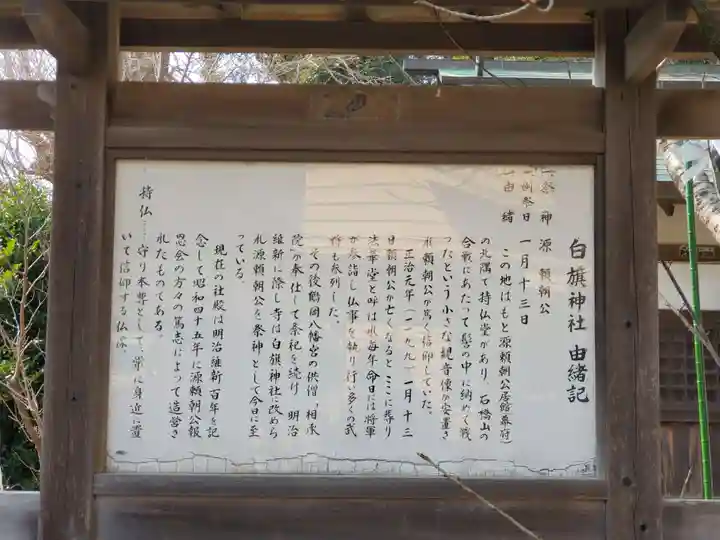 白旗神社 由緒記
一祭神 源 頼朝公
一例祭日 一月十三日
一由緒
この地はもと源頼朝公居館(幕府)
の北隅で持仏堂があり、石橋山の
合戦にあたって髪の中に納めて戦
ったという小さな観音像が安置さ
れ頼朝公が篤く信仰していた。
正治元年(一一九九)一月十三
日頼朝公が亡くなるとここに葬り
法華堂と呼ばれ毎年命日には将軍
が参詣し仏事を執り行い多くの武
将も参列した。
その後鶴岡八幡宮の供僧「相承
院」が奉仕して祭祀を続け、明治
維新に際し寺は白旗神社に改めら
れ源頼朝公を祭神として今日に至
っている。
現在の社殿は明治維新百年を記
念して昭和四十五年に源頼朝公報
恩会の方々の篤志によって造営さ
れたものである。
持仏……守り本尊として、常に身近に置
いて信仰する仏像